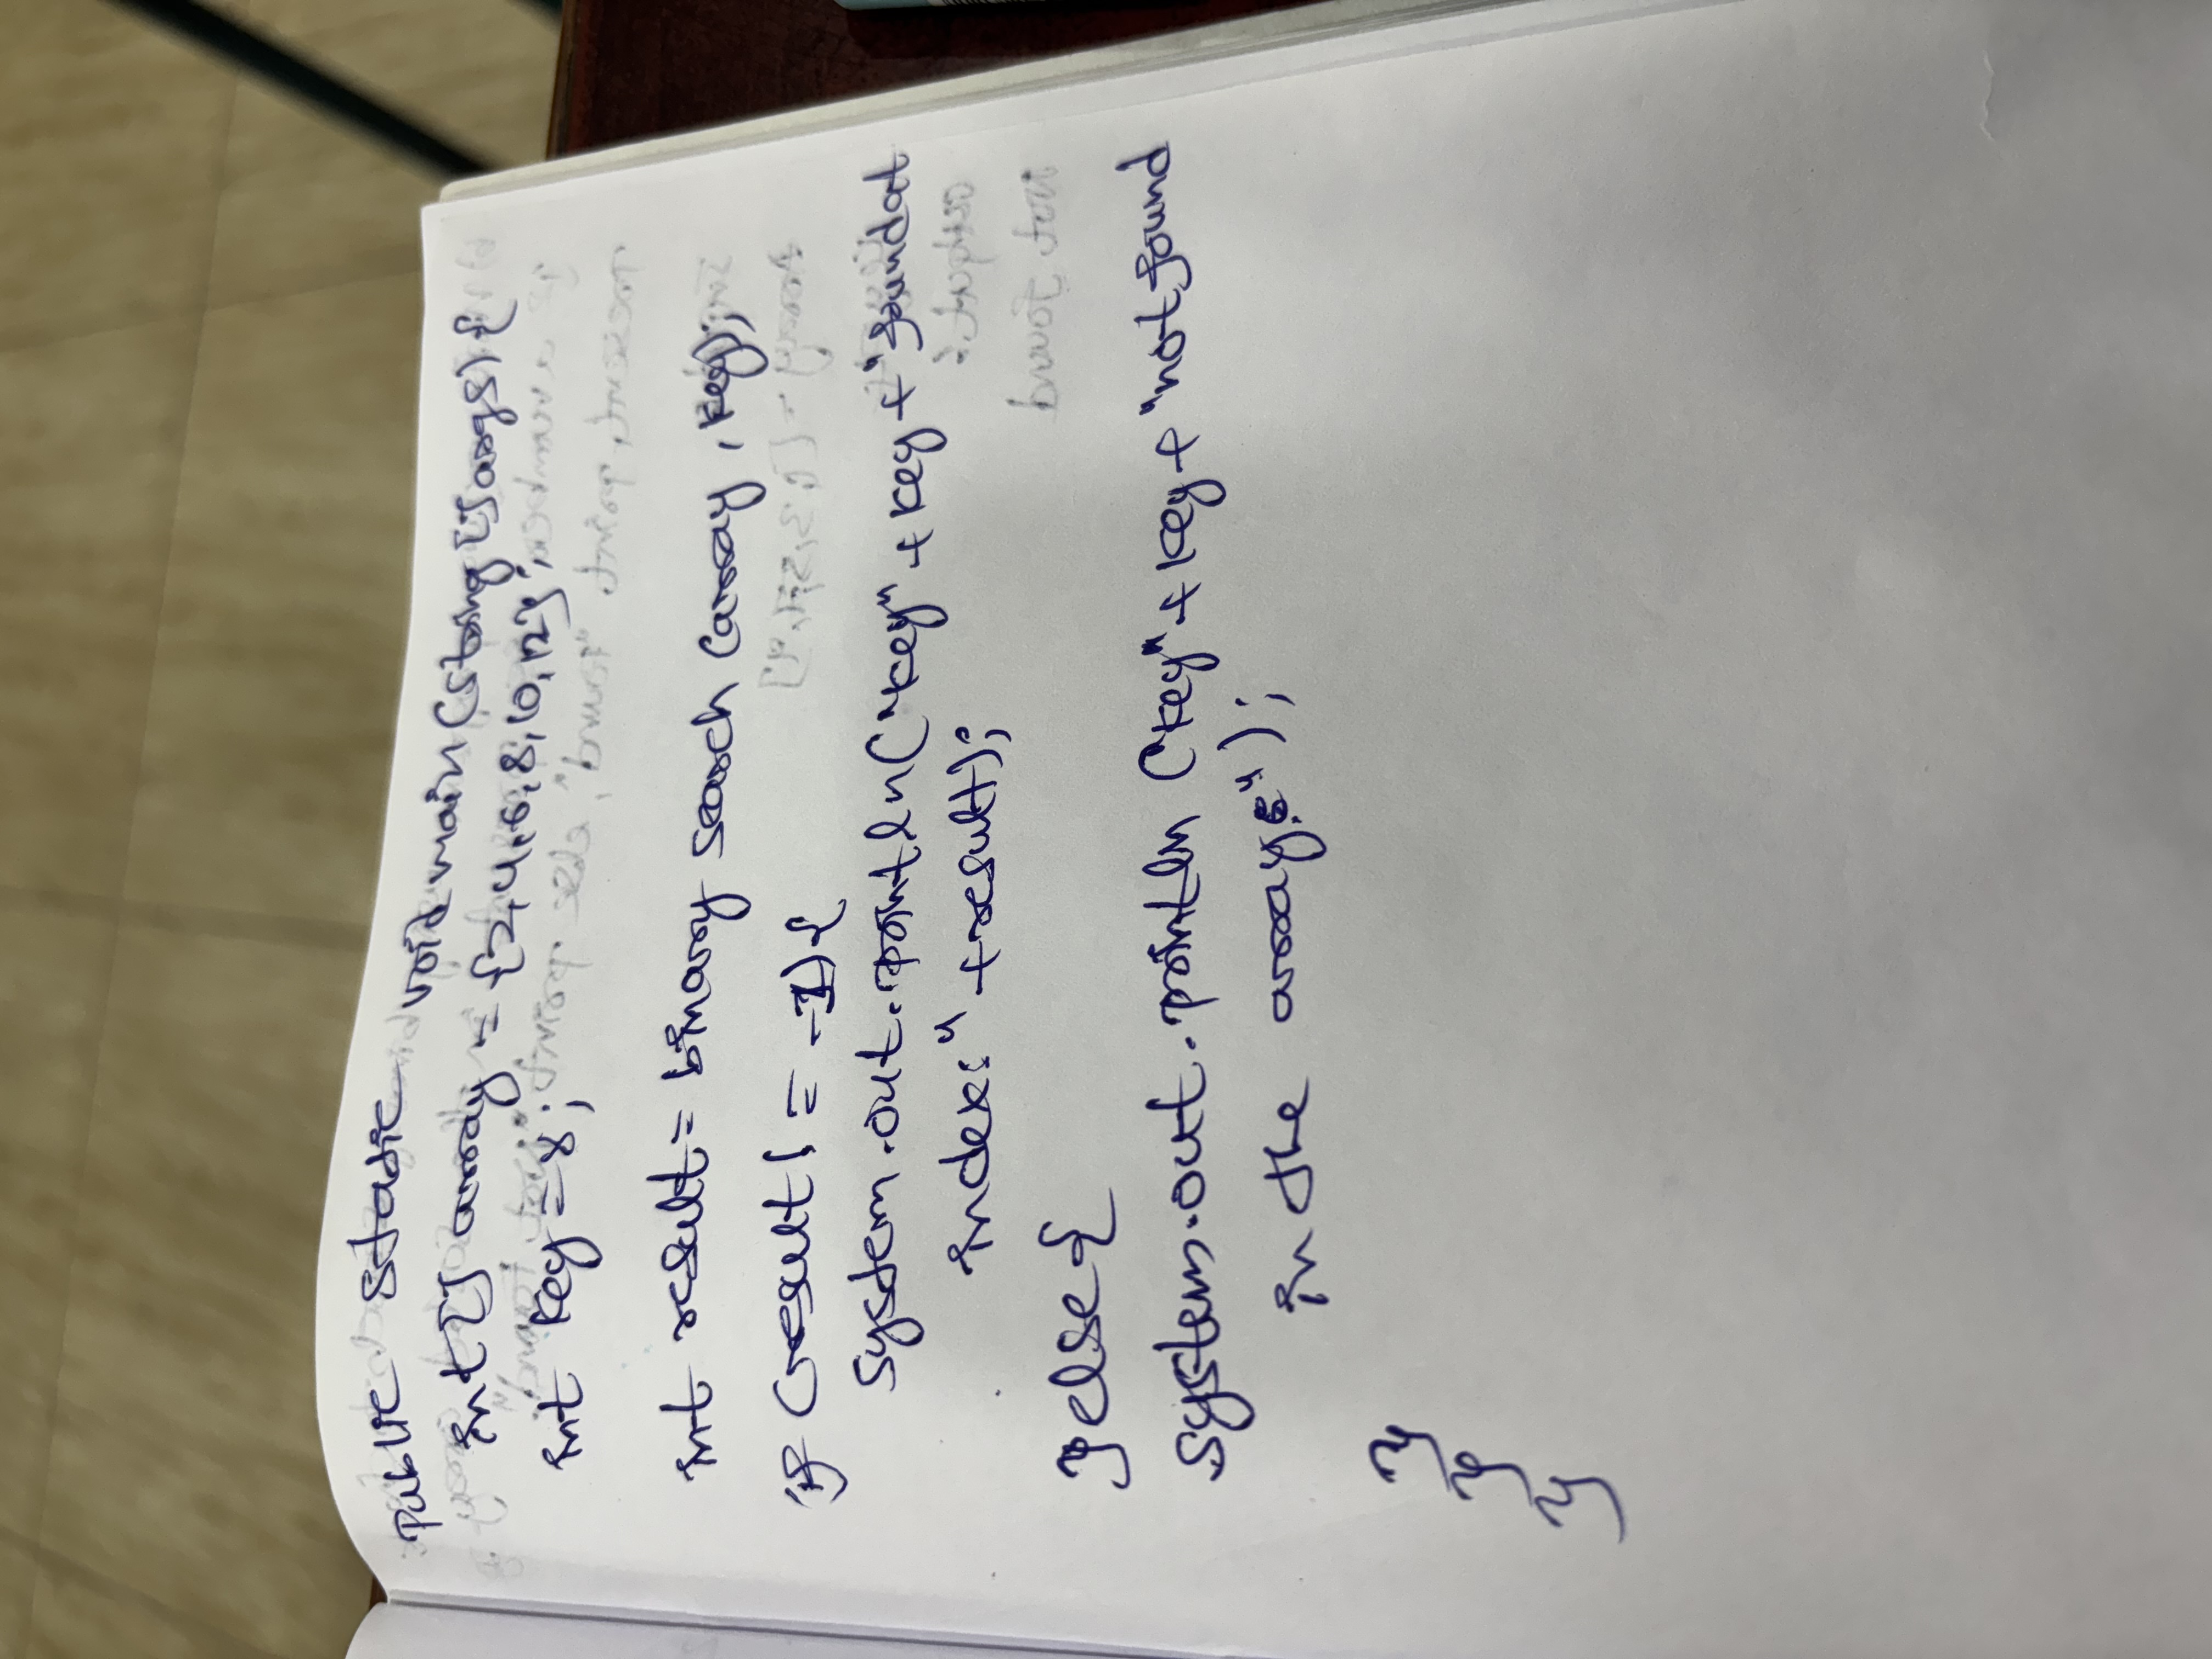 Public static void main(string[]args){
int[] array = {2,4,6,8,10,12};
int key=8;
int result= binary search (array, key);
if (result! = -1){
system.out.println("key"+key+"found at
index:"+result);
}else{
system.out.println ("key"+key+"not found
in the array.");
}
}
}